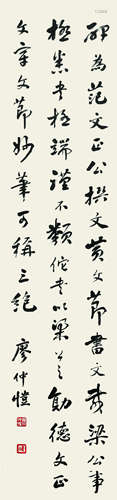 碑為范文正公撰文黃文節書文載梁公事
極悉書極端謹不類佗書以梁公之勛德文正
文章文節妙筆可稱三絕
廖仲愷